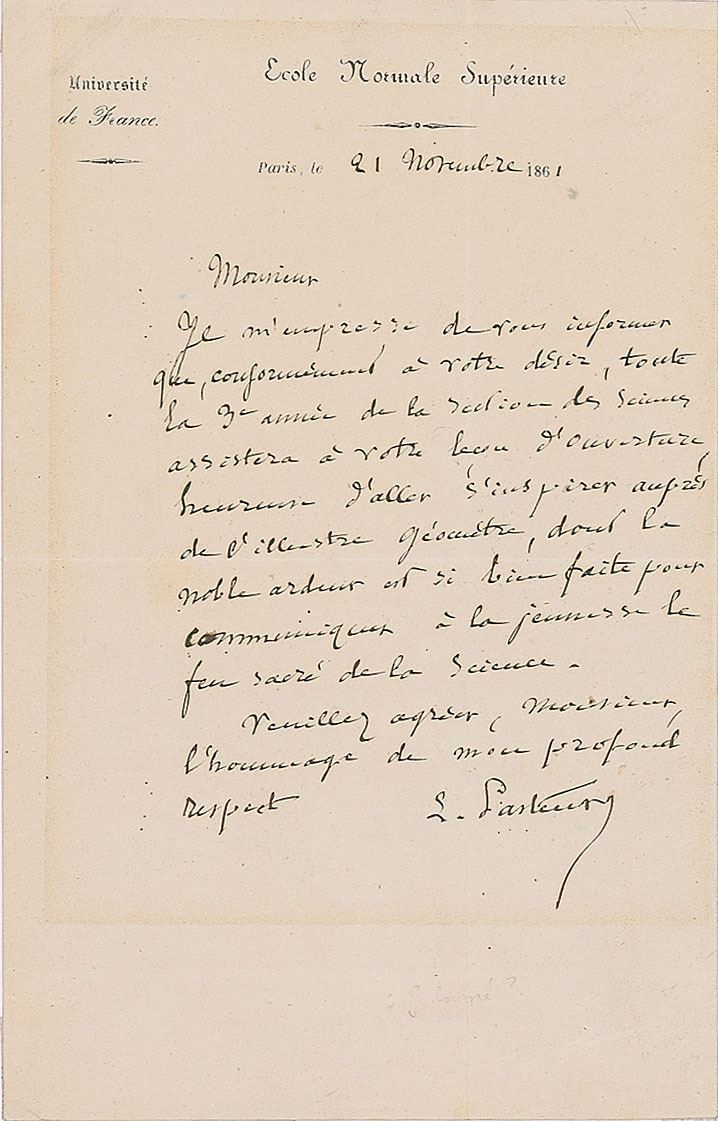 Université
de France.
Ecole Normale Supérieure
Paris, le 21 Novembre 1861
Monsieur
Je m'empresse de vous informer
que, conformément à votre désir, toute
la 3e année de la section des sciences
assistera à votre leçon d'ouverture,
heureuse d'aller s'inspirer auprès
de l'illustre géomètre, dont la
noble ardeur est si bien faite pour
communiquer à la jeunesse le
feu sacré de la Science.
Veuillez agréer, Monsieur,
l'hommage de mon profond
respect
L. Pasteur